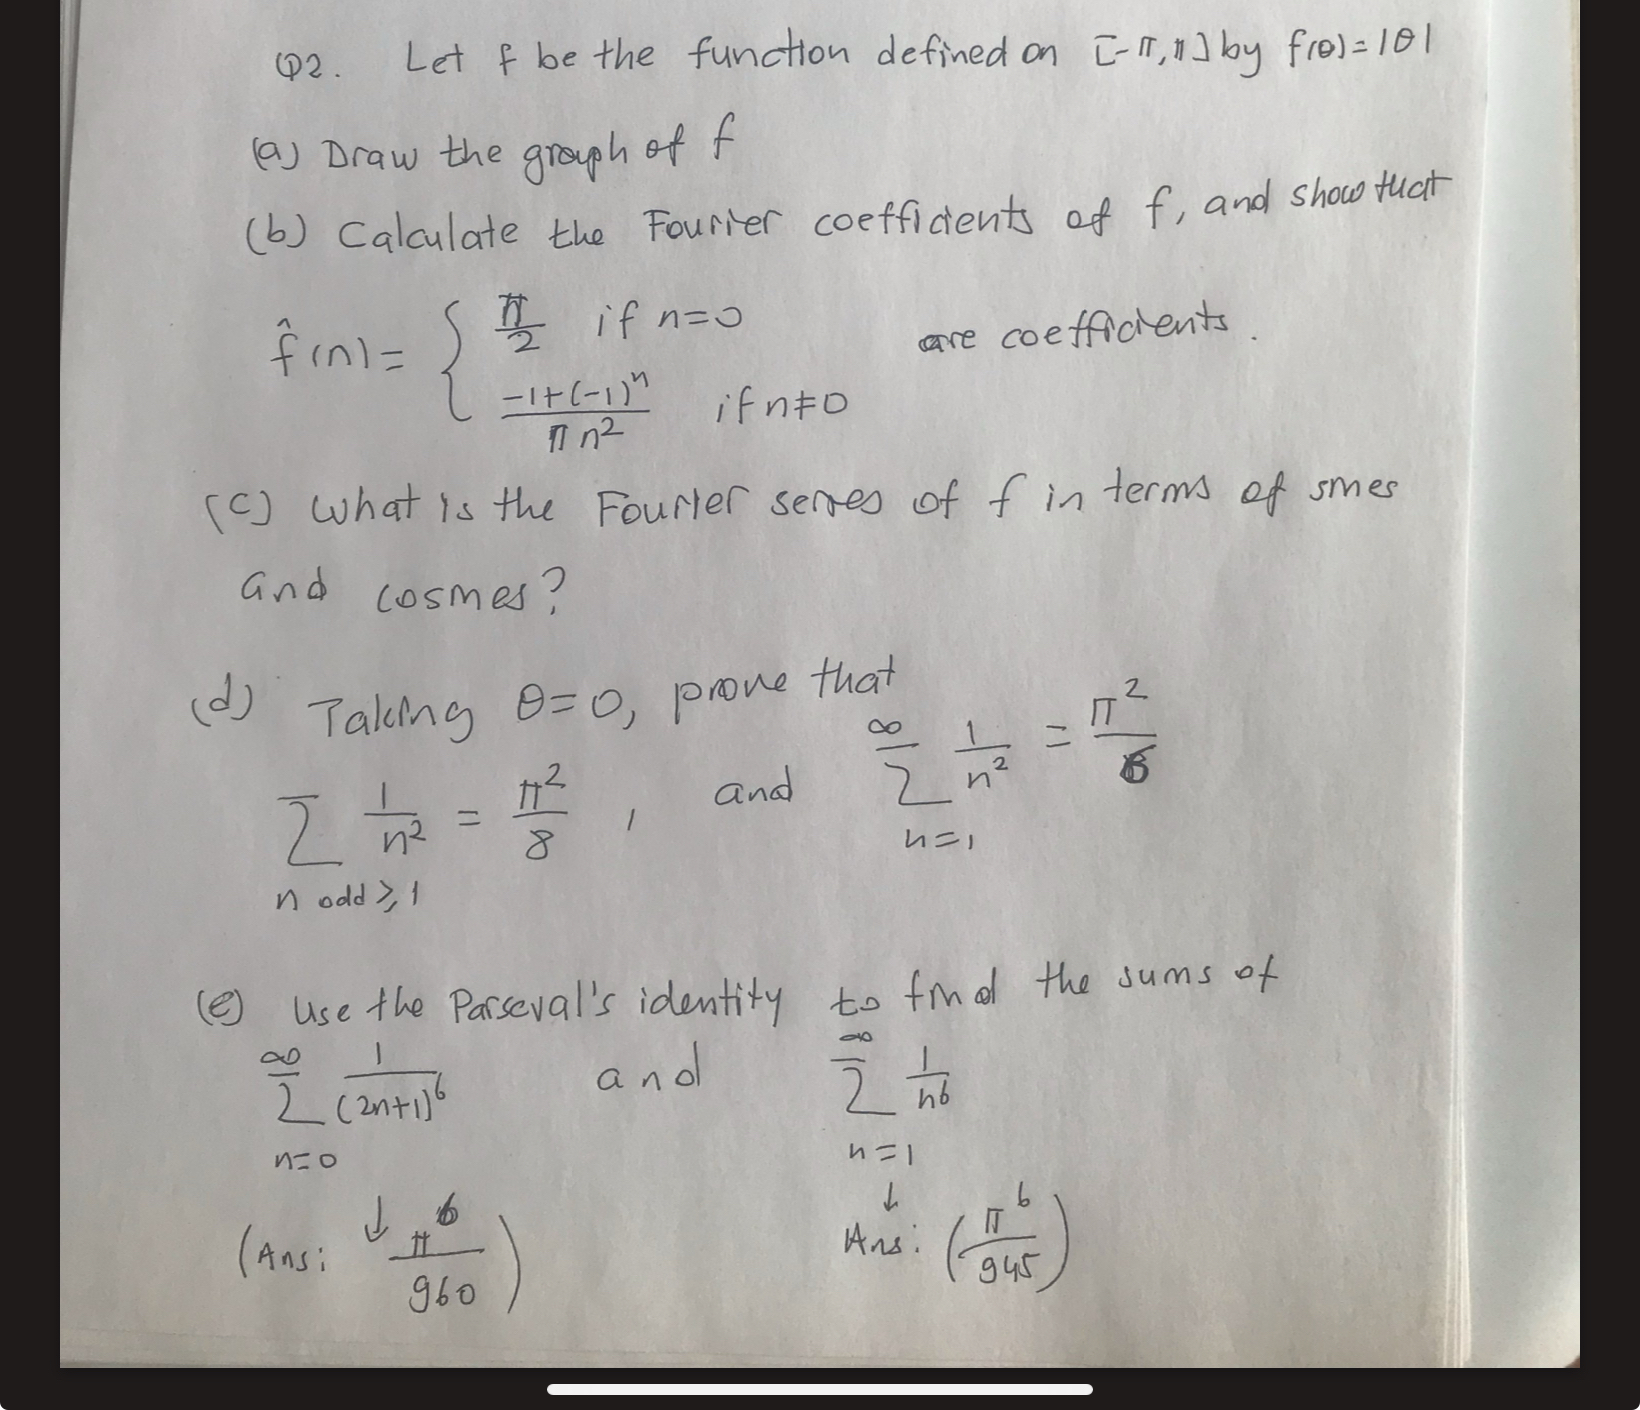 Q2. Let f be the function defined on [-π,π] by f(θ)=|θ|
(a) Draw the graph of f
(b) Calculate the Fourier coefficients of f, and show that
f̂(n) = { π/2 if n=0
are coefficients.
(-1+(-1)^n)/(πn²) if n≠0
(c) What is the Fourier series of f in terms of sines
and cosines?
(d) Taking θ=0, prove that
∑_{n odd ≥ 1} 1/n² = π²/8, and ∑_{n=1}^{∞} 1/n² = π²/6
(e) Use the Parseval's identity to find the sums of
∑_{n=0}^{∞} 1/(2n+1)^6 and ∑_{n=1}^{∞} 1/n^6
↓ ↓
(Ans: π^6/960) Ans: (π^6/945)